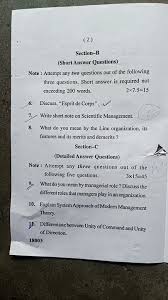 ( 2 )
Section-B
(Short Answer Questions)
Note : Attempt any two questions out of the following
three questions. Short answer is required not
exceeding 200 words. 2×7.5=15
6. Discuss, "Esprit de Corps".
7. Write short note on Scientific Management.
8. What do you mean by the Line organization, its
features and its merits and demerits ?
Section-C
(Detailed Answer Questions)
Note : Attempt any three questions out of the
following five questions. 3x15=45
9. What do you mean by managerial role ? Discuss the
different roles that managers play in an organization.
10. Explain System Approach of Modern Management
Theory.
11. Differentiate between Unity of Command and Unity
of Direction.
18003